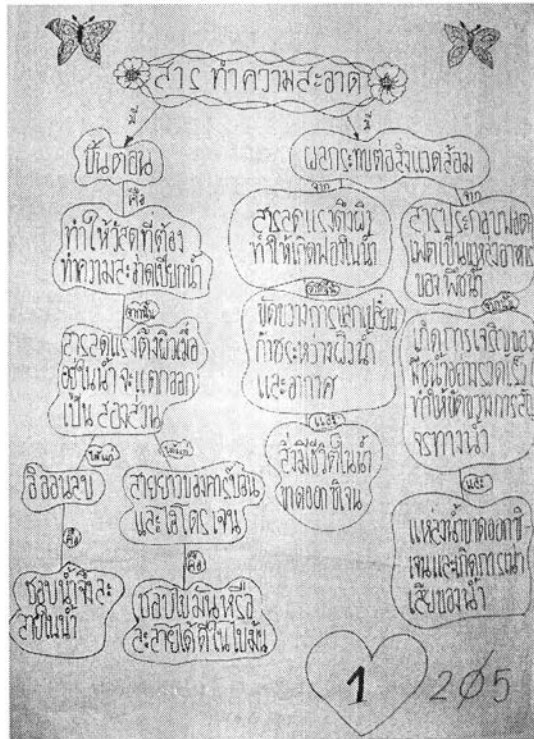 สาร ทำความสะอาด
มี
มี
ขั้นตอน
คือ
ทำให้วัสดุที่ต้อง
ทำความสะอาดเปียกน้ำ
จากนั้น
สารลดแรงตึงผิวเมื่อ
อยู่ในน้ำจะแตกออก
เป็น สองส่วน
ได้แก่
ได้แก่
อิออนลบ
คือ
ชอบน้ำจึงละ
ลายในน้ำ
สายยาวของคาร์บอน
และไฮโดรเจน
คือ
ชอบไขมันหรือ
ละลายได้ดีในไขมัน
ผลกระทบต่อสิ่งแวดล้อม
จาก
จาก
สารลดแรงตึงผิว
ทำให้เกิดฟองในน้ำ
จากนั้น
ขัดขวางการแลกเปลี่ยน
ก๊าซระหว่างผิวน้ำ
และอากาศ
และ
สิ่งมีชีวิตในน้ำ
ขาดออกซิเจน
สารประกอบฟอสเ
ฟตเป็นแหล่งอาหาร
ของ พืชน้ำ
จากนั้น
เกิดการเจริญของ
พืชน้ำอย่างรวดเร็ว
ทำให้ขัดขวางการสัญ
จรทางน้ำ
และ
แหล่งน้ำขาดออกซิ
เจนและเกิดการเน่า
เสียของน้ำ
1
205